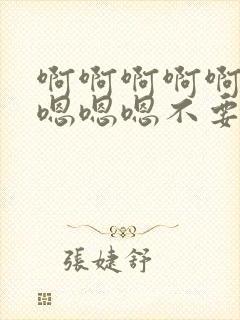 啊啊啊啊啊
嗯嗯嗯不要
張婕舒